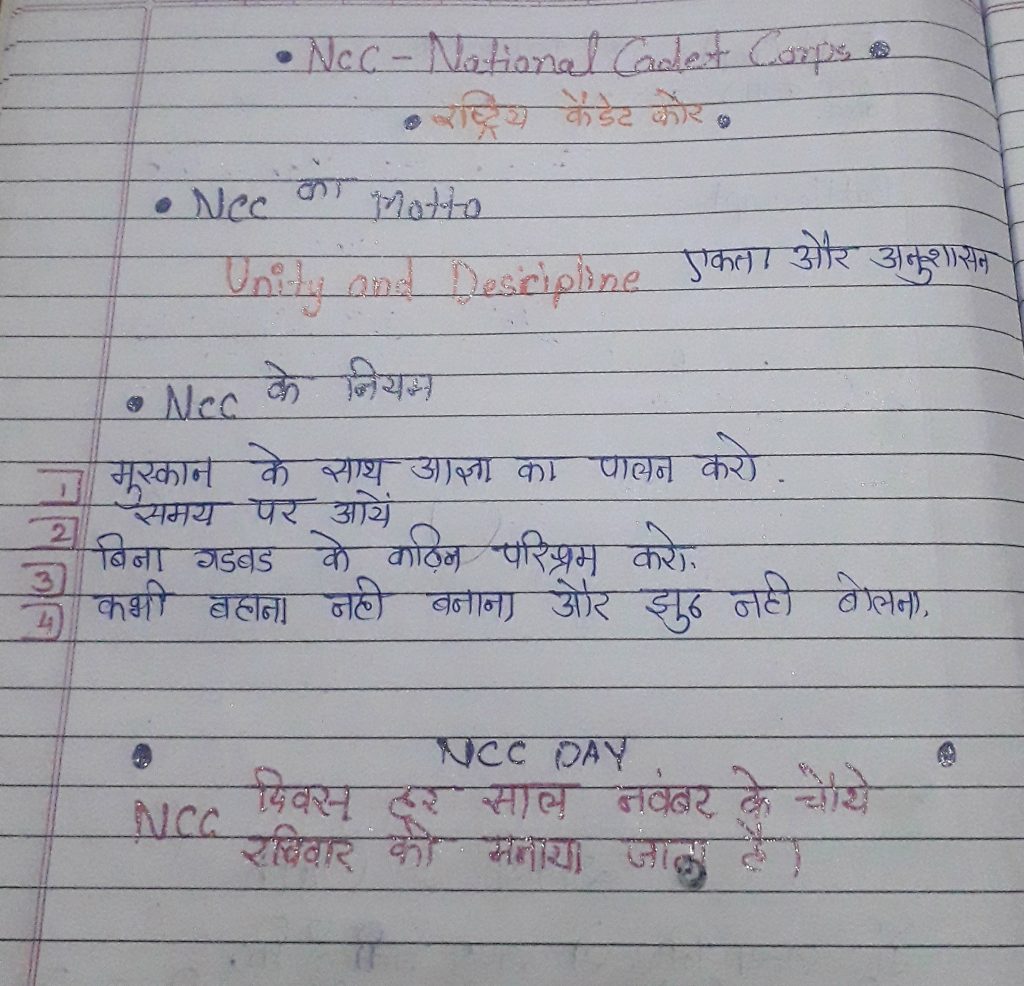 • NCC - National Cadet Corps •
• राष्ट्रिय कैडेट कोर •
• NCC का Motto
Unity and Desicipline एकता और अनुशासन
• NCC के नियम
1 मुस्कान के साथ आज्ञा का पालन करो.
2 समय पर आयें
3 बिना गडबड के कठिन परिश्रम करो.
4 कभी बहाना नही बनाना और झुठ नही बोलना.
• NCC DAY •
NCC दिवस हर साल नवंबर के चौथे
रविवार को मनाया जाता है।